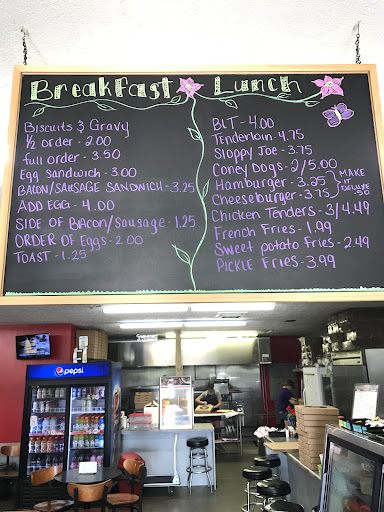 Breakfast Lunch
Biscuits & Gravy
½ order - 2.00
full order - 3.50
Egg sandwich - 3.00
BACON/SAUSAGE SANDWICH - 3.25
ADD EGG - 4.00
SIDE OF BACON/Sausage - 1.25
ORDER OF Eggs - 2.00
TOAST - 1.25
BLT - 4.00
Tenderloin - 4.75
Sloppy Joe - 3.75
Coney Dogs - 2/5.00
Hamburger - 3.25
Cheeseburger - 3.75
MAKE
IT
DELUXE
.50
Chicken Tenders - 3/4.49
French Fries - 1.99
Sweet potato Fries - 2.49
PICKLE Fries - 3.99
pepsi